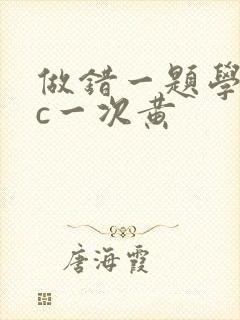 做錯一題學
c一次黃
唐海霞